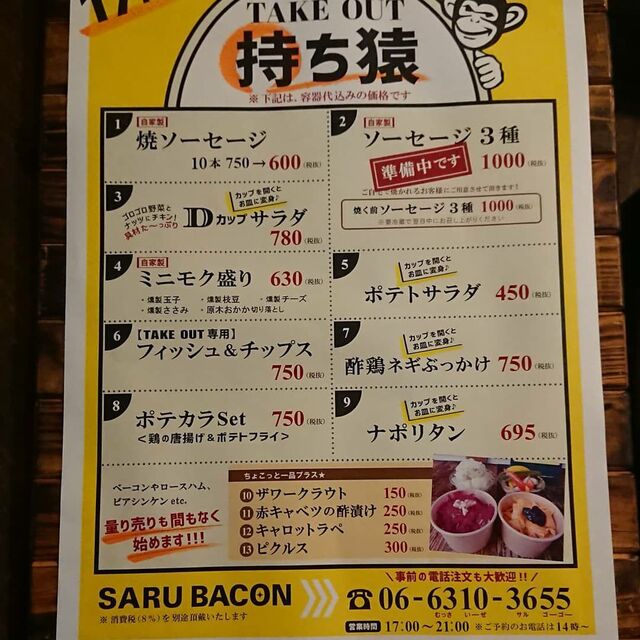 TAKE OUT
持ち猿
※下記は、容器代込みの価格です
1
【自家製】
焼ソーセージ
10本 750→600(税抜)
2
【自家製】
ソーセージ3種
準備中です
1000(税抜)
ご自宅で焼かれるお客様にご用意させて頂きます!
焼く前ソーセージ3種 1000(税抜)
※要冷蔵で翌日中にお召し上がりください
3
ゴロゴロ野菜と
ナッツにチキン!
具材た〜っぷり
カップを開くと
お皿に変身♪
Dカップサラダ
780(税抜)
4
【自家製】
ミニモク盛り 630(税抜)
・燻製玉子 ・燻製枝豆 ・燻製チーズ
・燻製ささみ ・原木おかか切り落とし
5
カップを開くと
お皿に変身♪
ポテトサラダ 450(税抜)
6
【TAKE OUT 専用】
フィッシュ&チップス
750(税抜)
7
カップを開くと
お皿に変身♪
酢鶏ネギぶっかけ 750(税抜)
8
ポテカラSet 750(税抜)
<鶏の唐揚げ&ポテトフライ>
9
カップを開くと
お皿に変身♪
ナポリタン 695(税抜)
ベーコンやロースハム、
ビアシンケン etc.
量り売りも間もなく
始めます!!!
ちょこっと一品プラス★
10 ザワークラウト 150(税抜)
11 赤キャベツの酢漬け 250(税抜)
12 キャロットラペ 250(税抜)
13 ピクルス 300(税抜)
SARU BACON
※消費税(8%)を別途頂戴いたします
\事前の電話注文も大歓迎!!/
☎06-6310-3655
むっさ いーぜ サル ゴーゴー
営業時間 17:00〜21:00 ※ご予約のお電話は14時〜